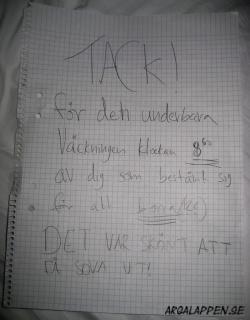 TACK!
för den underbara
Väckningen klockan 8⁰⁰
av dig som bestämt sig
för att
DET VAR SKÖNT ATT
FÅ SOVA UT!
ARGALAPPEN.SE